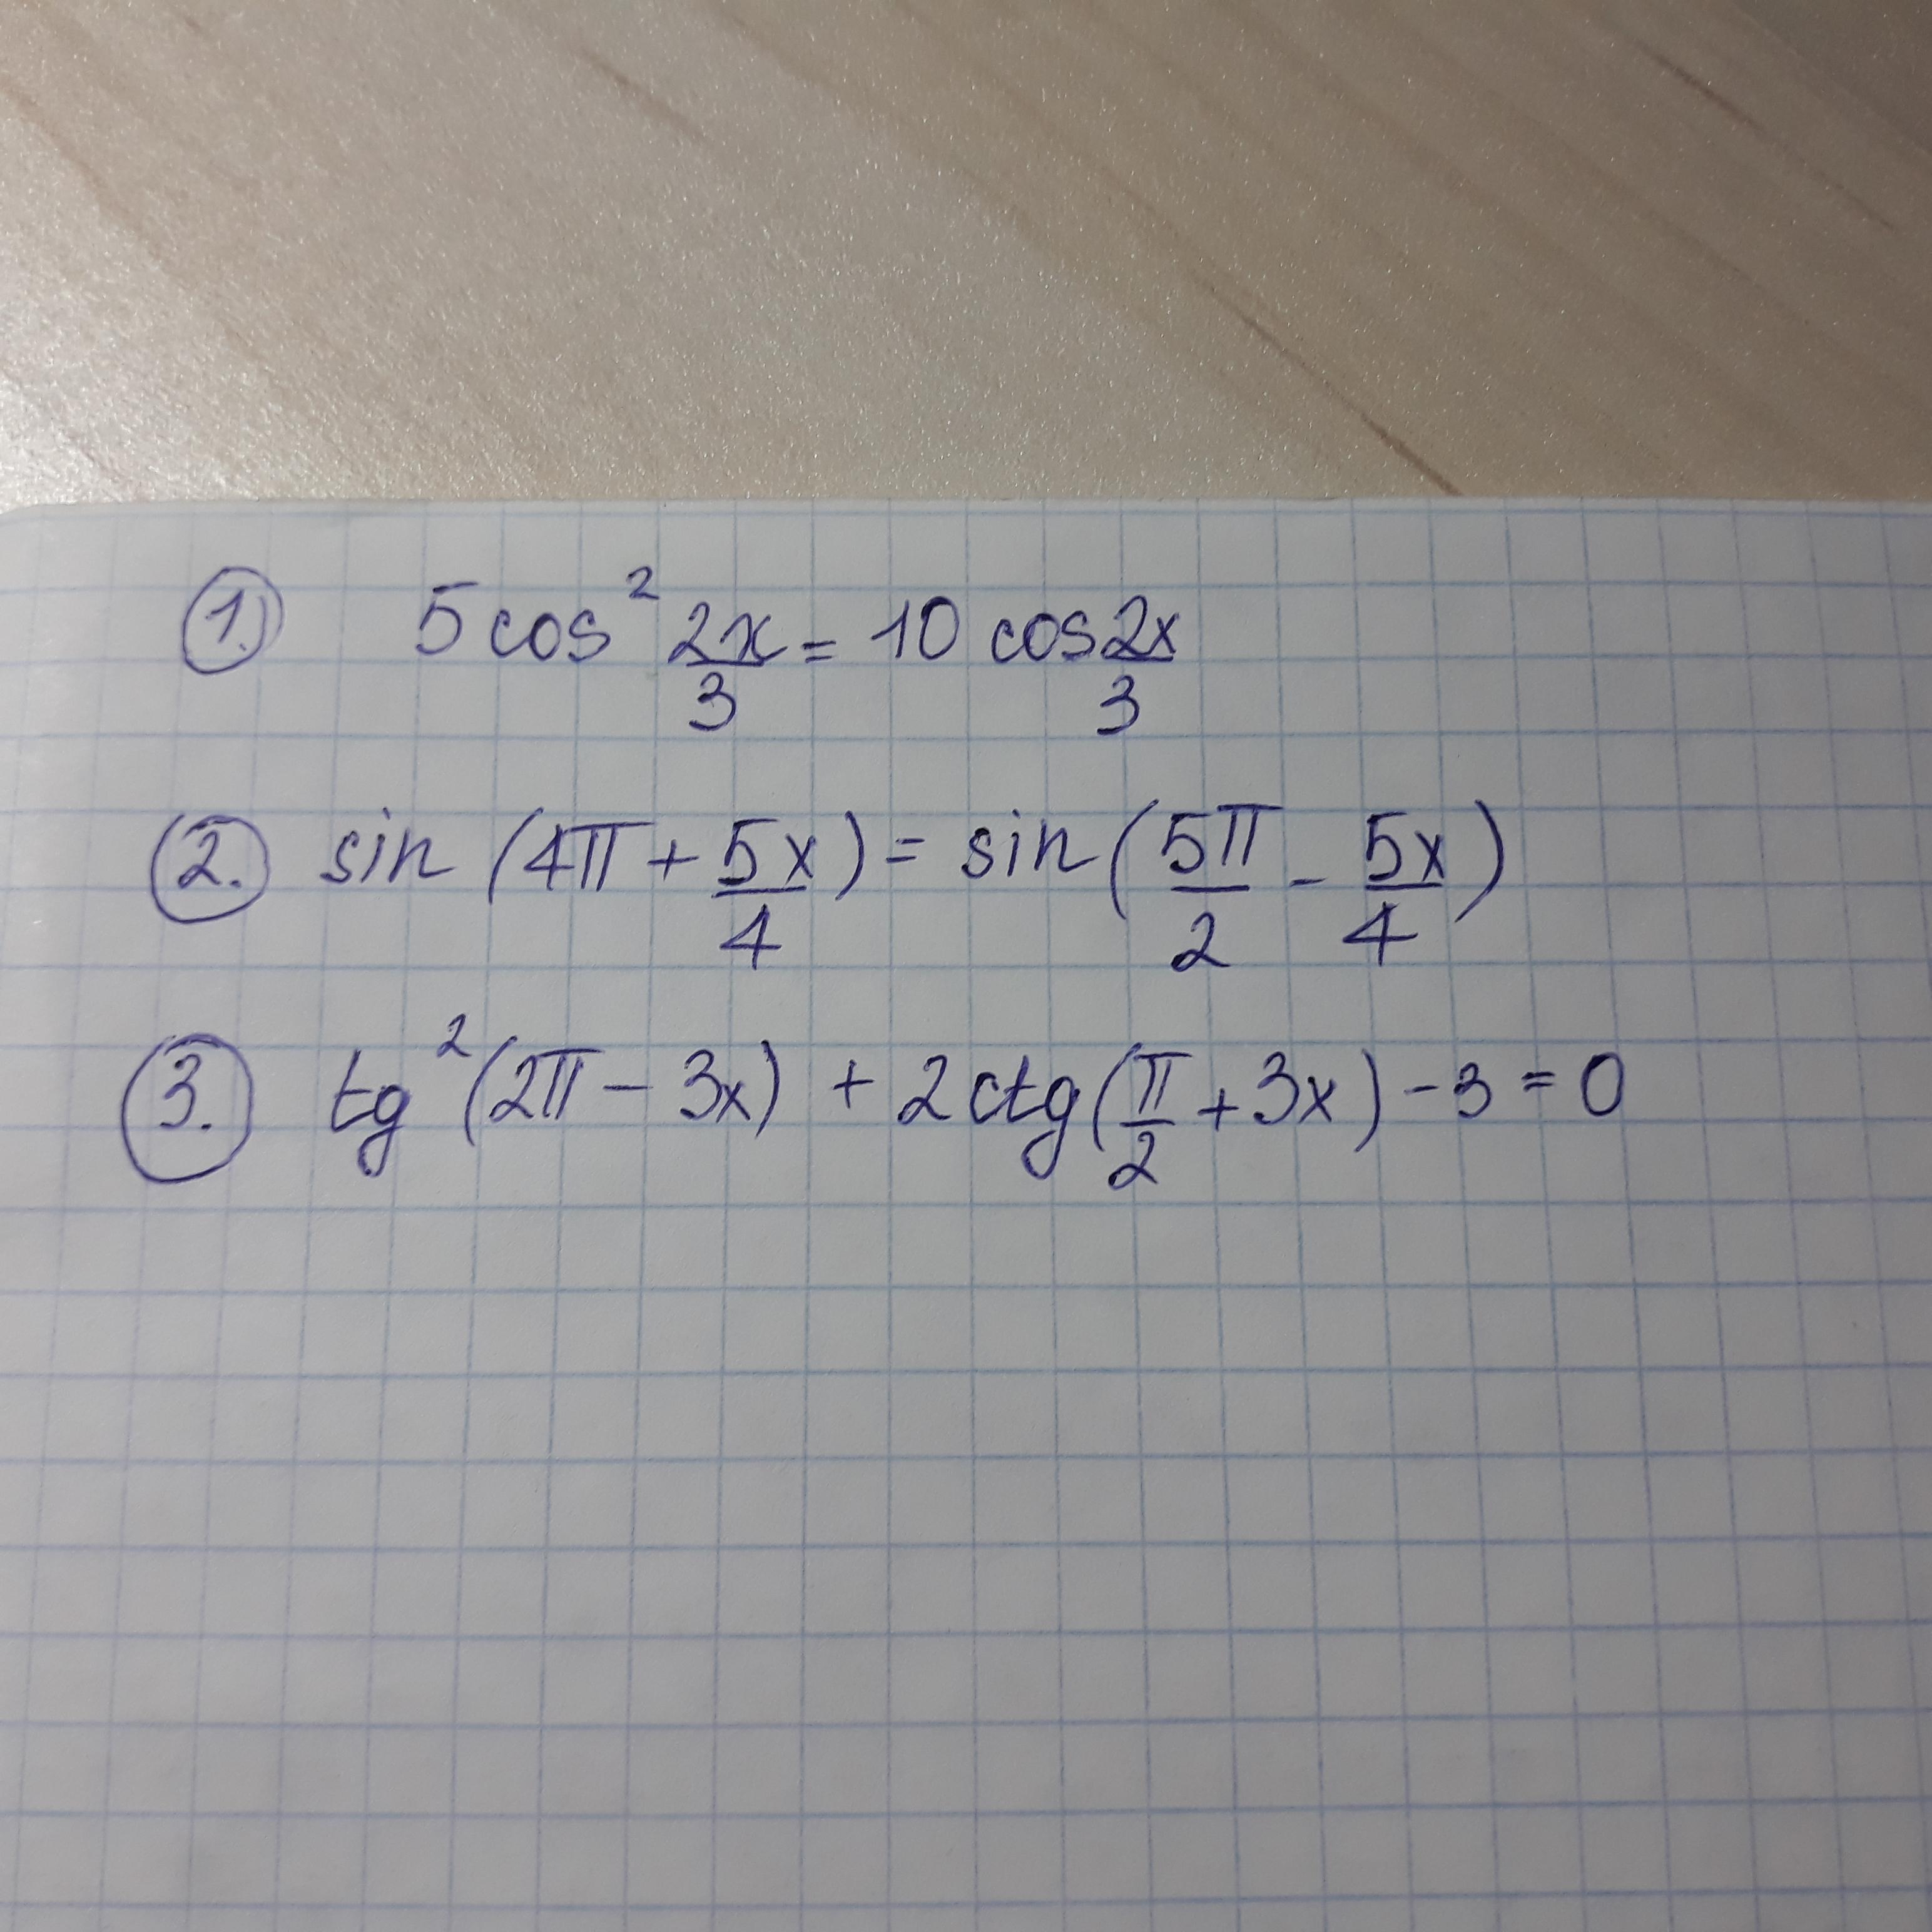 1. 5 cos² 2x/3 = 10 cos 2x/3
2. sin (4π + 5x/4) = sin (5π/2 - 5x/4)
3. tg² (2π - 3x) + 2 ctg (π/2 + 3x) - 3 = 0